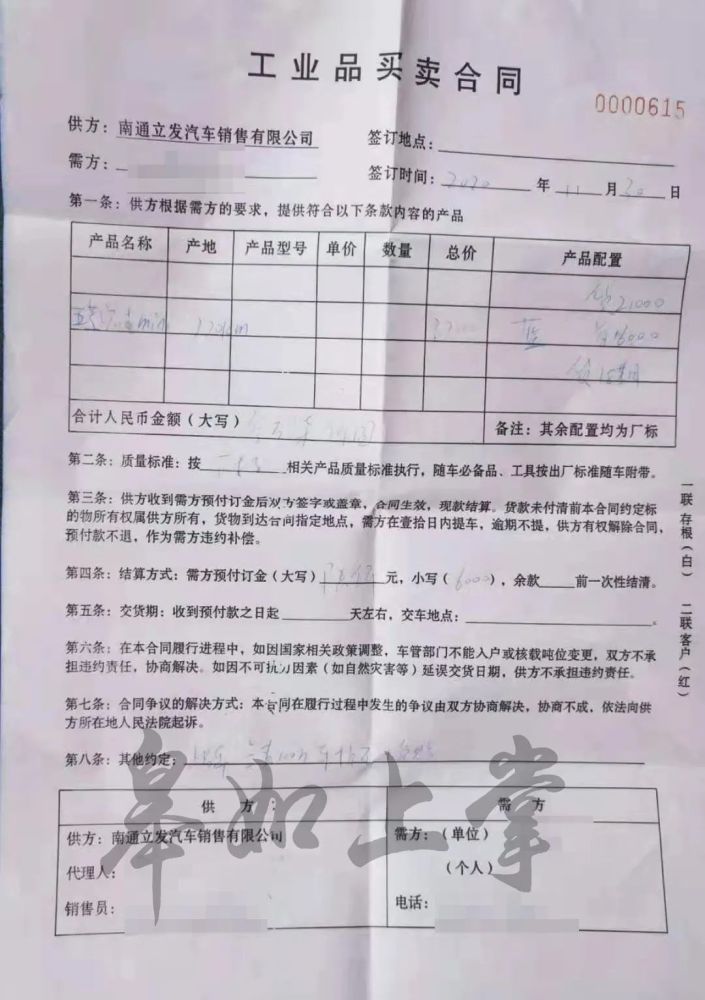 工业品买卖合同
0000615
供方：南通立发汽车销售有限公司 签订地点：
需方： 签订时间：2020 年 11 月 30 日
第一条：供方根据需方的要求，提供符合以下条款内容的产品
产品名称 产地 产品型号 单价 数量 总价 产品配置
21000
蓝
合计人民币金额（大写） 备注：其余配置均为厂标
第二条：质量标准：按 相关产品质量标准执行，随车必备品、工具按出厂标准随车附带。
第三条：供方收到需方预付订金后双方签字或盖章，合同生效，现款结算。货款未付清前本合同约定标
的物所有权属供方所有，货物到达合同指定地点，需方在壹拾日内提车，逾期不提，供方有权解除合同，
预付款不退，作为需方违约补偿。
第四条：结算方式：需方预付订金（大写） 元，小写（6000），余款 前一次性结清。
第五条：交货期：收到预付款之日起 天左右，交车地点： 。
第六条：在本合同履行进程中，如因国家相关政策调整，车管部门不能入户或核载吨位变更，双方不承
担违约责任，协商解决。如因不可抗力因素（如自然灾害等）延误交货日期，供方不承担违约责任。
第七条：合同争议的解决方式：本合同在履行过程中发生的争议由双方协商解决，协商不成，依法向供
方所在地人民法院起诉。
第八条：其他约定：
供 方： 需 方
供方：南通立发汽车销售有限公司 需方：（单位）
代理人： （个人）
销售员： 电话：
一联 存根（白） 二联 客户（红）
皋如上掌